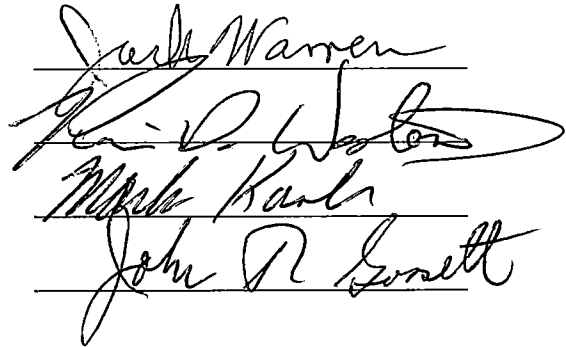 Jack Warren
Kevin D. Weston
Mark Karls
John R Gossett